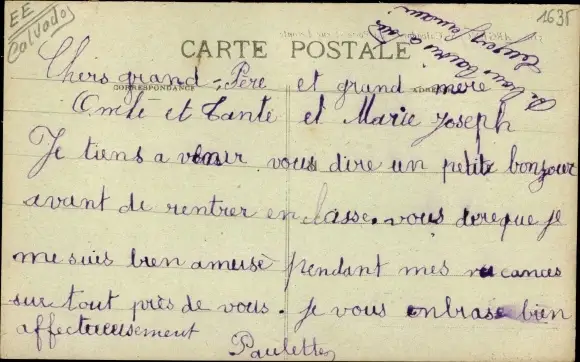 EE
Calvados
1635
CARTE POSTALE
CORRESPONDANCE
Chers grand-Père et grand mere
Oncle et Tante et Marie Joseph
Je tiens a venir vous dire un petite bonjour
avant de rentrer en classe. vous dire que je
me suis bien amusé pendant mes vacances
sur tout près de vous. Je vous enbrasse bien
affectueusement
Paulette